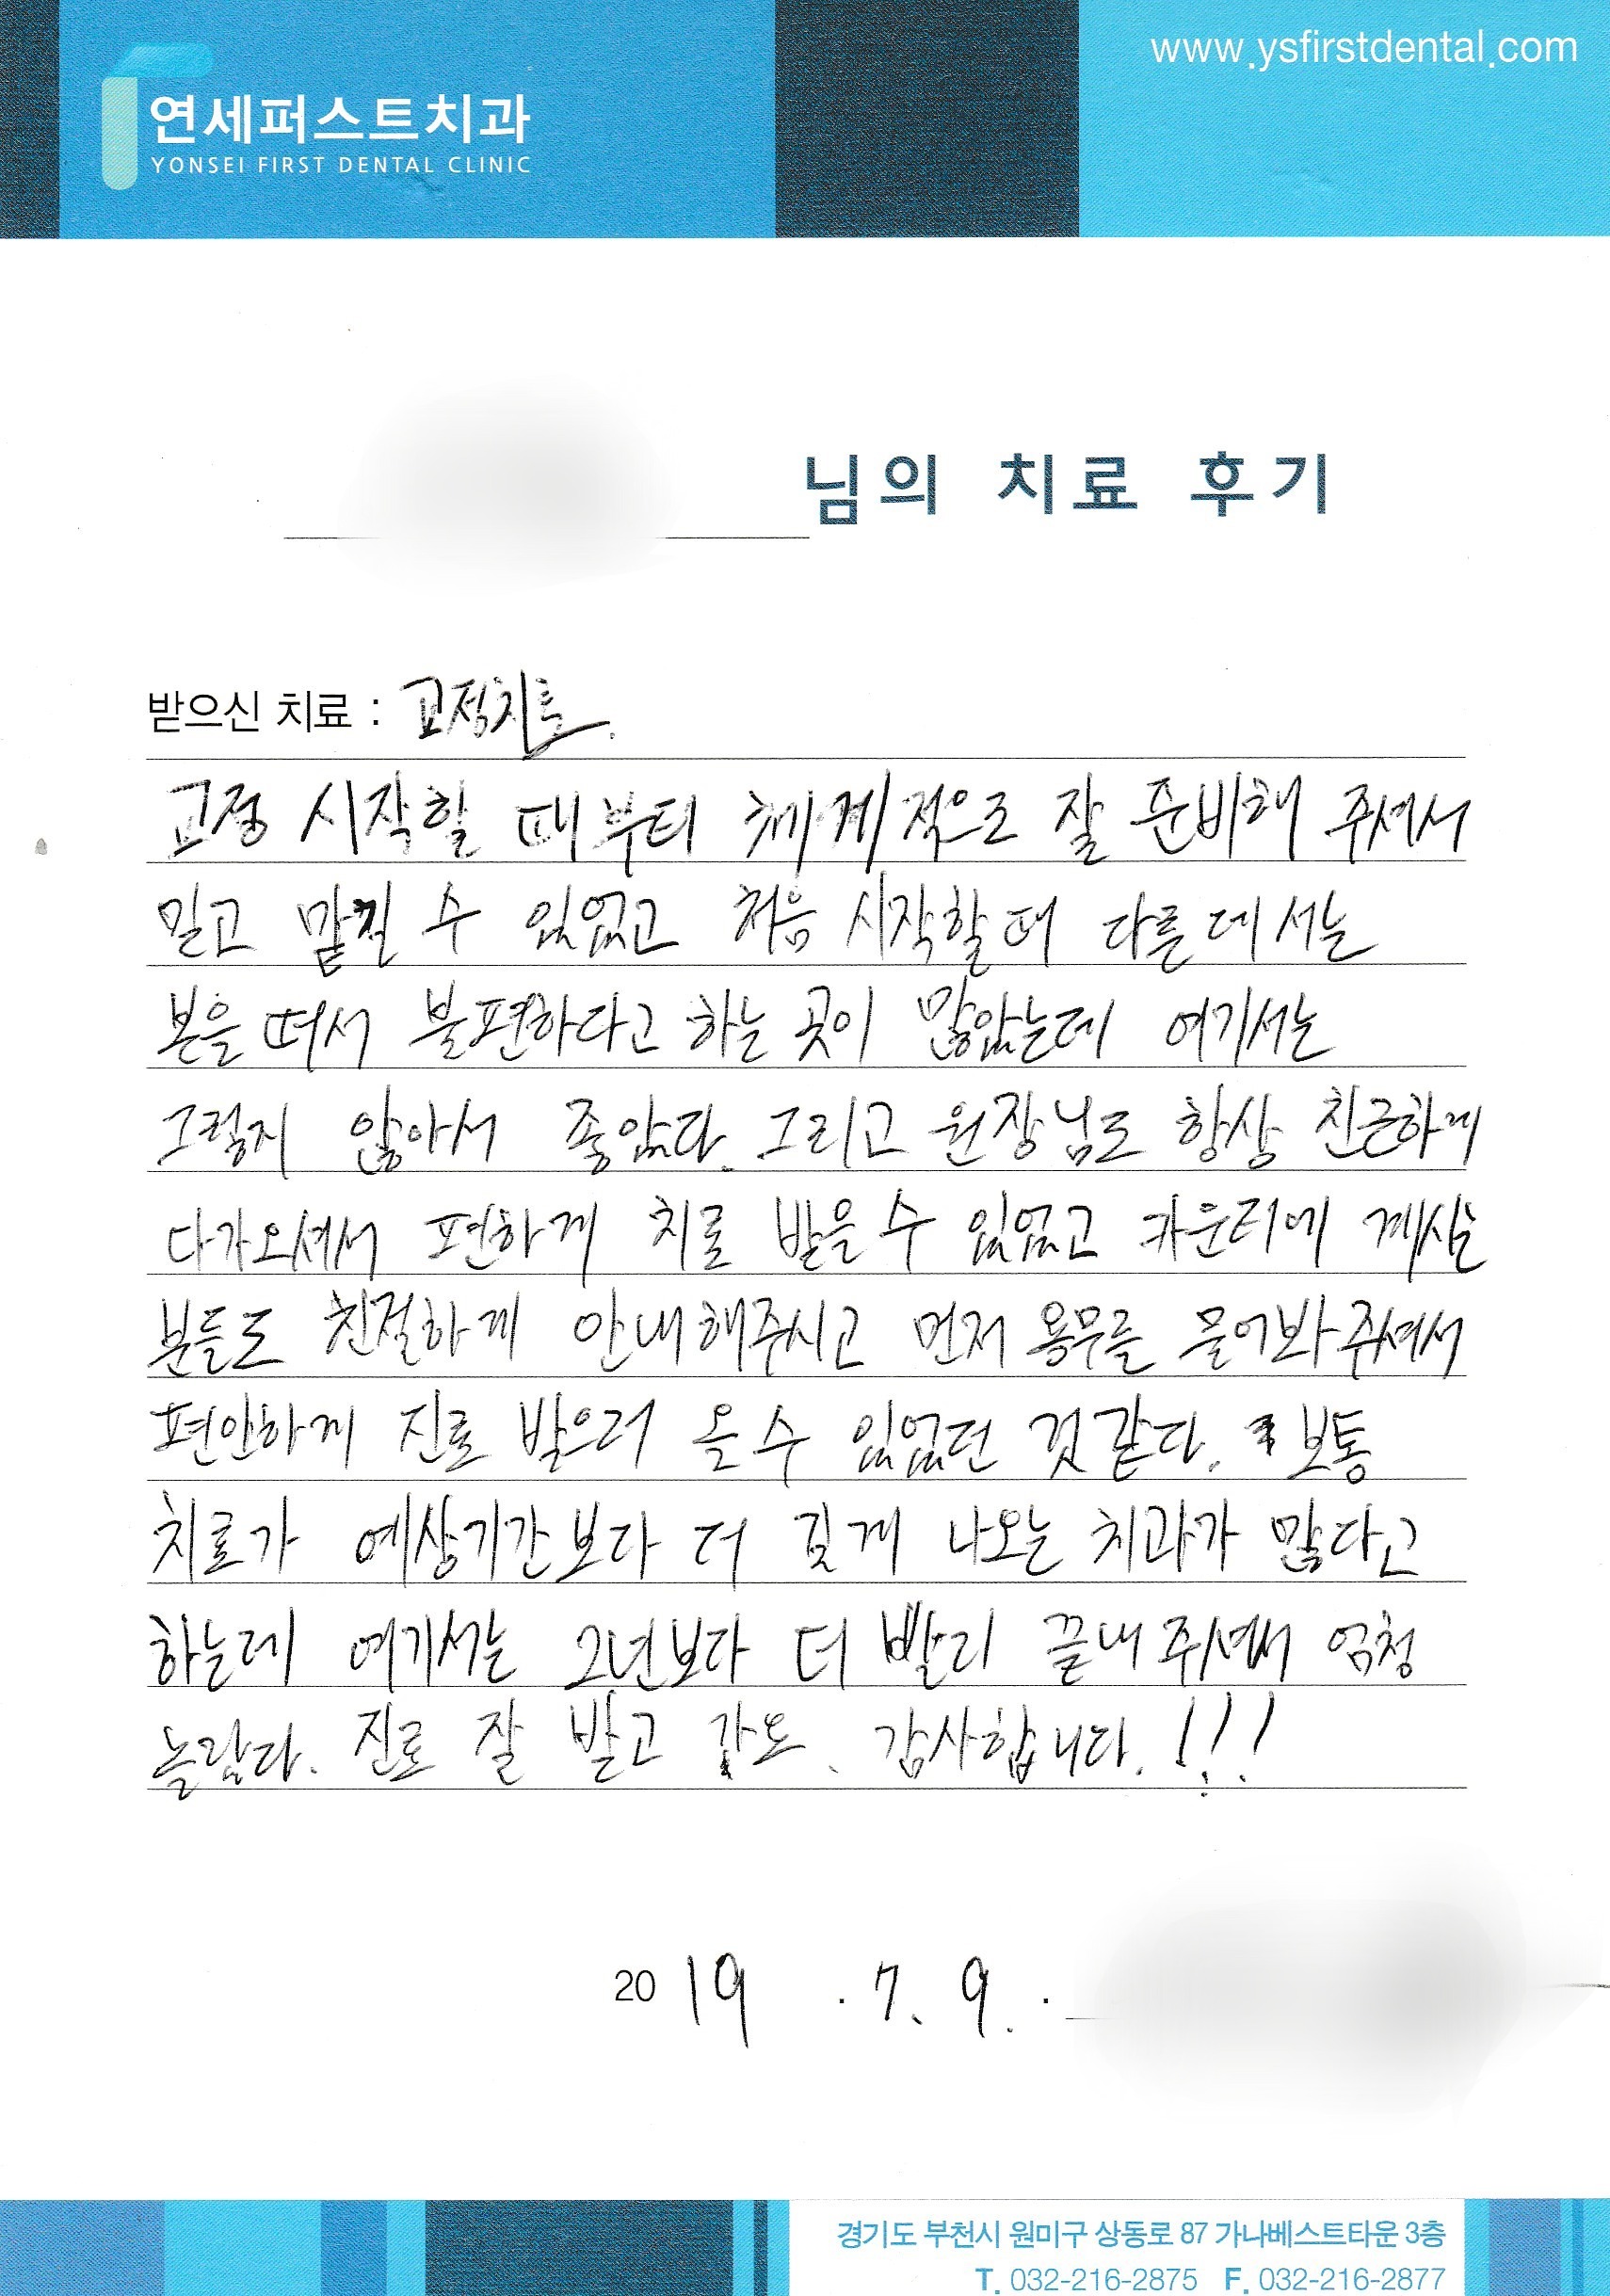 연세퍼스트치과
YONSEI FIRST DENTAL CLINIC
www.ysfirstdental.com
님의 치료 후기
받으신 치료 : 교정치료.
교정 시작할 때부터 체계적으로 잘 준비해 주셔서
믿고 맡길 수 있었고 처음 시작할때 다른데서는
본을 떠서 불편하다고 하는 곳이 많았는데 여기서는
그렇지 않아서 좋았다. 그리고 원장님도 항상 친근하게
다가오셔서 편하게 치료 받을 수 있었고 카운터에 계시는
분들도 친절하게 안내해주시고 먼저 용무를 물어봐주셔서
편안하게 진료 받으러 올 수 있었던 것 같다. 보통
치료가 예상기간보다 더 길게 나오는 치과가 많다고
하는데 여기서는 2년보다 더 빨리 끝내주셔서 엄청
놀랐다. 진료 잘 받고 가요. 감사합니다.!!!
2019 . 7. 9. .
경기도 부천시 원미구 상동로 87 가나베스트타운 3층
T. 032-216-2875 F. 032-216-2877